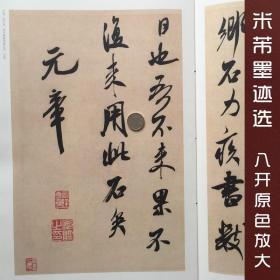 米芾墨迹选 八开原色放大
鄉石力疾書數
日也吾不来果不
復来用此石矣
元章